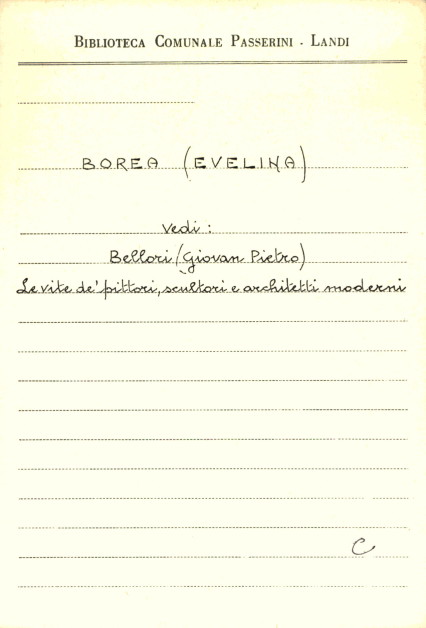 BIBLIOTECA COMUNALE PASSERINI - LANDI
BOREA (EVELINA)
Vedi :
Bellori (Giovan Pietro)
Le vite de' pittori, scultori e architetti moderni
C